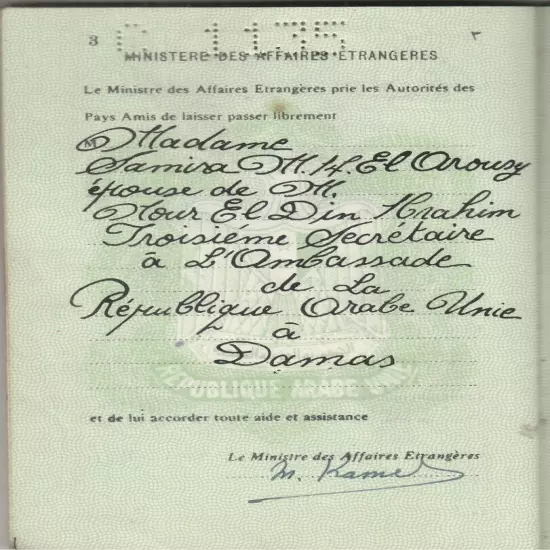 3 ٣
MINISTERE DES AFFAIRES ETRANGERES
Le Ministre des Affaires Etrangères prie les Autorités des
Pays Amis de laisser passer librement
M Madame
Samira M. H. El Arousy
épouse de M.
Nour El Din Ibrahim
Troisiéme Secrétaire
à L'Ambassade
de La
République Arabe Unie
à
Damas
REPUBLIQUE ARABE UNIE
et de lui accorder toute aide et assistance
Le Ministre des Affaires Etrangères
M. Kamel